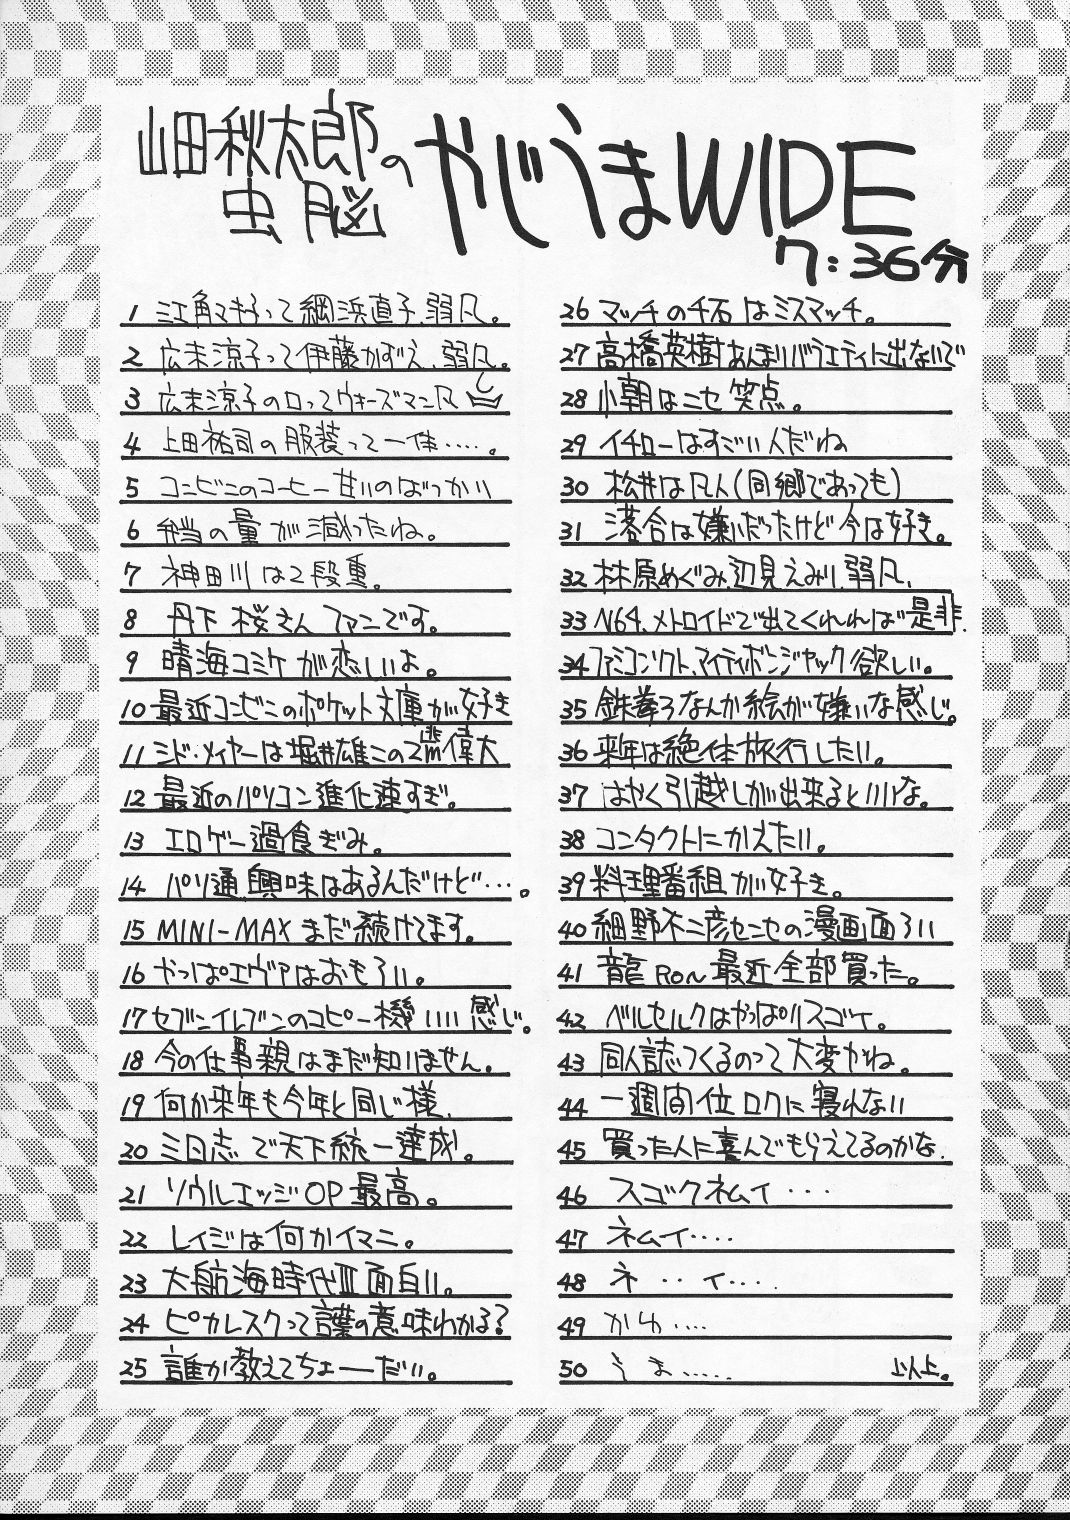 山田秋太郎の
虫脳
やじうまWIDE
7:36分
1 江角マキ子って綱浜直子、弱凡。
2 広末涼子って伊藤かずえ、弱凡。
3 広末涼子の口ってウォーズマン凡
4 上田祐司の服装って一体‥‥。
5 コンビニのコーヒー甘いのばっかい
6 弁当の量が減ったね。
7 神田川は2段重。
8 丹下桜さんファンです。
9 晴海コミケが恋しいよ。
10 最近コンビニのポケット文庫が好き
11 シド・メイヤーは堀井雄二の2歯偉大
12 最近のパソコン進化速すぎ。
13 エロゲー過食ぎみ。
14 パソ通興味はあるんだけど…。
15 MINI-MAXまだ続けてます。
16 やっぱエヴァはおもろい。
17 セブンイレブンのコピー機いい感じ。
18 今の仕事親はまだ知りません。
19 何か来年も今年と同じ様、
20 三日志で天下統一達成。
21 ソウルエッジOP最高。
22 レイジは何かイマニ。
23 大航海時代Ⅲ面白い。
24 ピカレスクって言葉の意味わかる?
25 誰か教えてちょーーだい。
26 マッチの千石はミスマッチ。
27 高橋英樹あんまりバラエティに出ないで
28 小朝はニセ笑点。
29 イチローはすごい人だね
30 松井は凡人(同郷であっても)
31 落合は嫌いだったけど今は好き。
32 林原めぐみ、辺見えみり、弱凡、
33 N64、メトロイドで出てくれれば是非.
34 ファミコンソフト、マイティボンジャック欲しい。
35 鉄拳3なんか絵が嫌いな感じ。
36 来年は絶体旅行したい。
37 はやく引越しが出来るといいな。
38 コンタクトにかえたい。
39 料理番組が好き。
40 細野不二彦センセの漫画面ろい
41 龍RON最近全部買った。
42 ベルセルクはやっぱりスゴイ。
43 同人誌つくるのって大変かね。
44 一週間位ロクに寝れない
45 買った人に喜んでもらえてるのかな.
46 スゴクネムイ・・・
47 ネムイ‥‥
48 ネ ‥ イ‥‥
49 かゆ‥‥
50 うま‥‥‥ 以上。